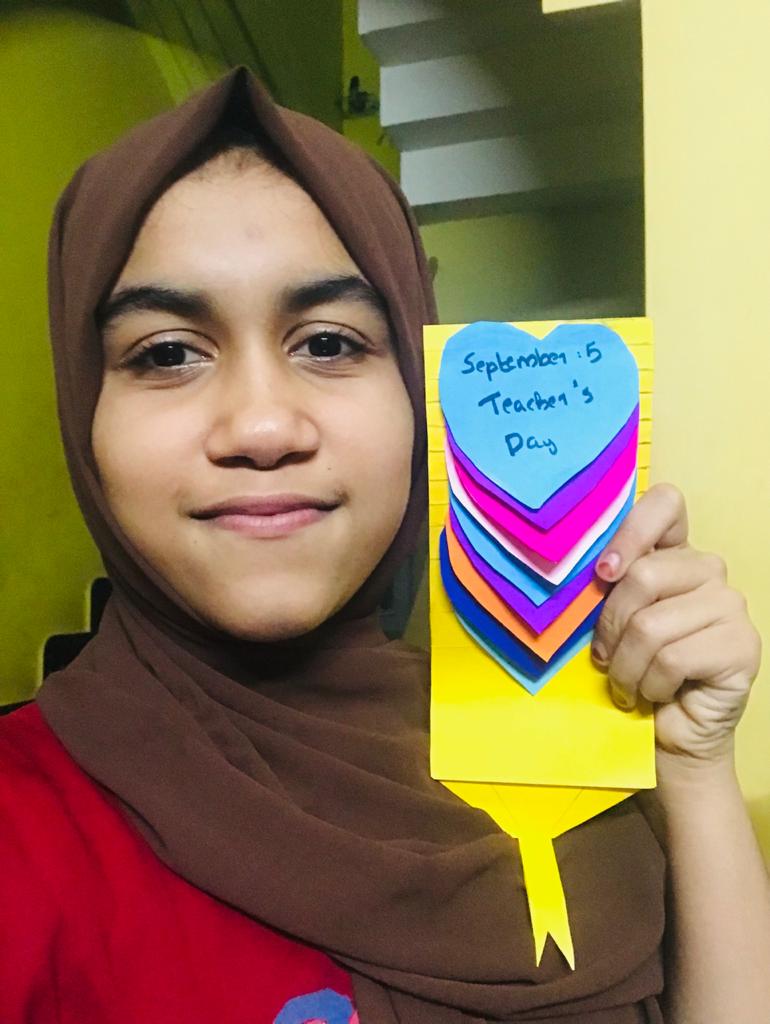 September : 5
Teacher's
Day